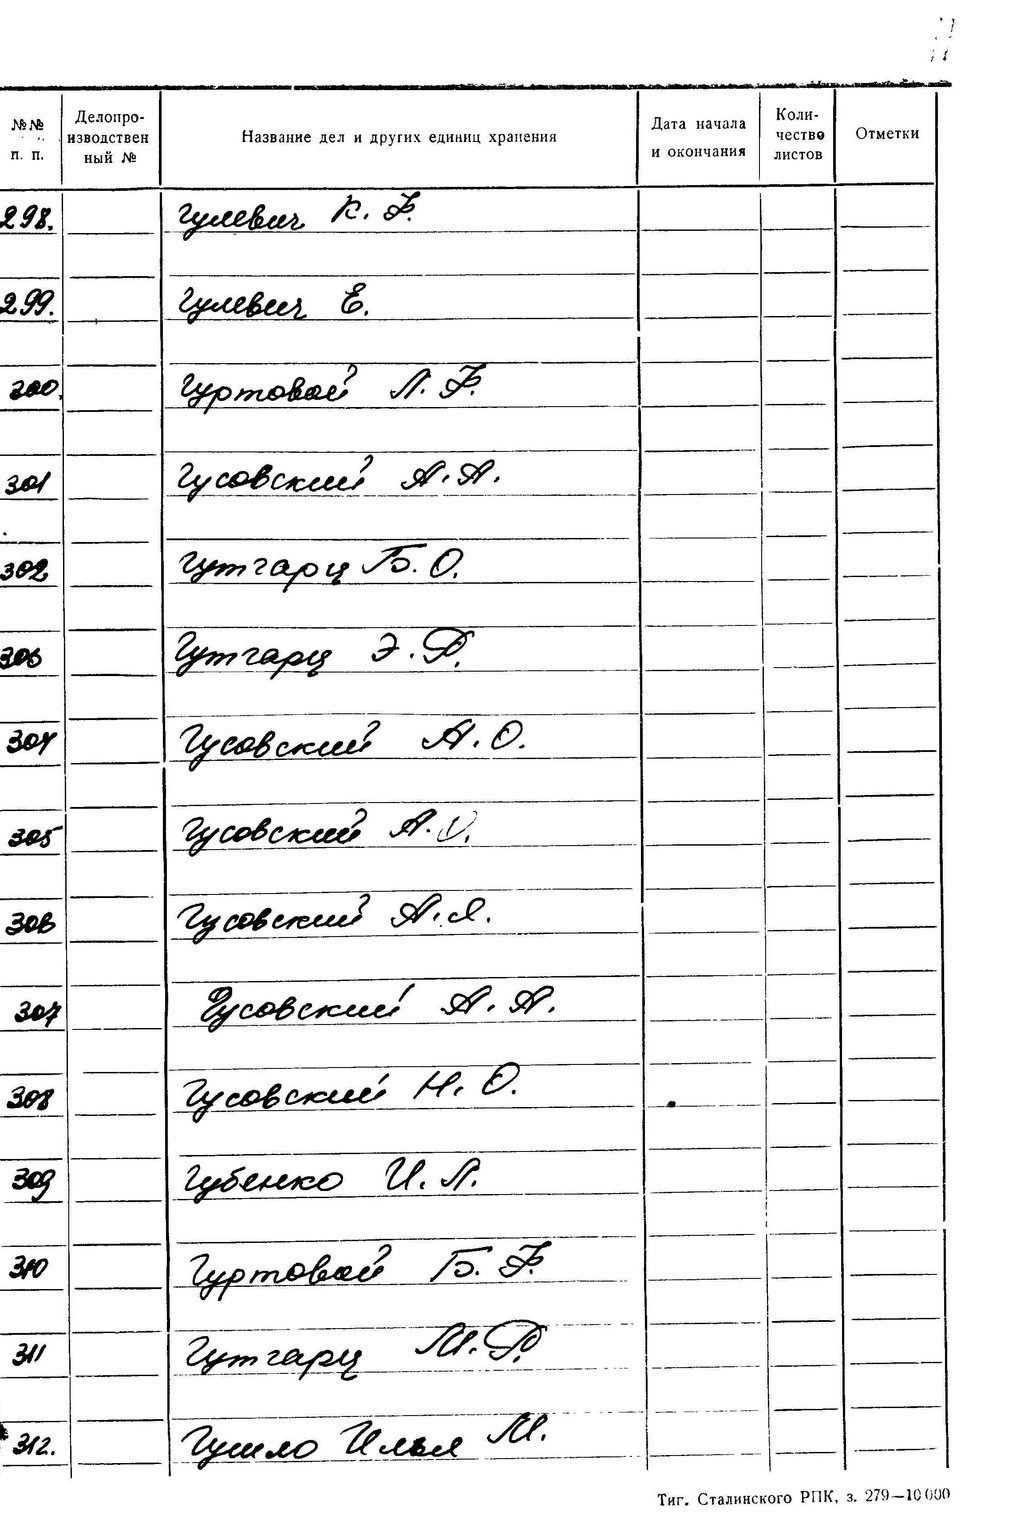 №№ п. п.
Делопроизводствен ный №
Название дел и других единиц хранения
Дата начала и окончания
Коли- чество листов
Отметки
298. Гулевич К. Ф.
299. Гулевич Е.
300. Гуртовой Л. Ф.
301 Гусовский А. А.
302 Гутгарц Б. О.
303 Гутгарц Э. Р.
304 Гусовский А. О.
305 Гусовский А. О.
306 Гусовский А. Я.
307 Гусовский А. А.
308 Гусовский Н. О.
309 Губенко И. Л.
310 Гуртовой Б. Ф.
311 Гутгарц М. Р.
312. Гушло Илья М.
Тиг. Сталинского РПК, з. 279—10 000